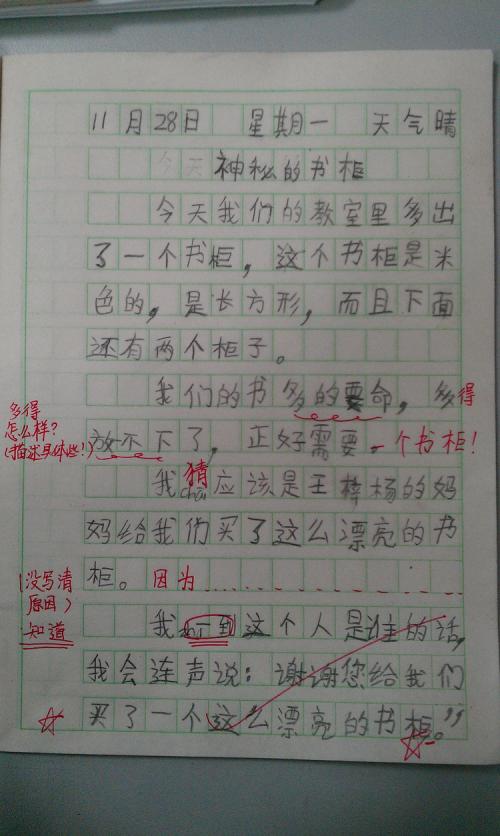 11月28日 星期一 天气晴
今天 神秘的书柜
今天我们的教室里多出
了一个书柜，这个书柜是米
色的，是长方形，而且下面
还有两个柜子。
我们的书多的要命，多得
多得
怎么样？
(描述具体些！)
放不下了，正好需要一个书柜！
我猜应该是王梓杨的妈
chāi
妈给我们买了这么漂亮的书
柜。因为
(没写清
原因)
知道
我 到这个人是谁的话，
我会连声说：谢谢您给我们
买了一个这么漂亮的书柜。”